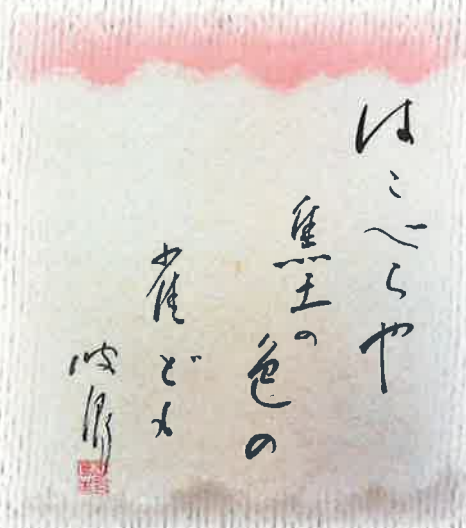 はこべらや
焦土の
色の
雀ども
波郷